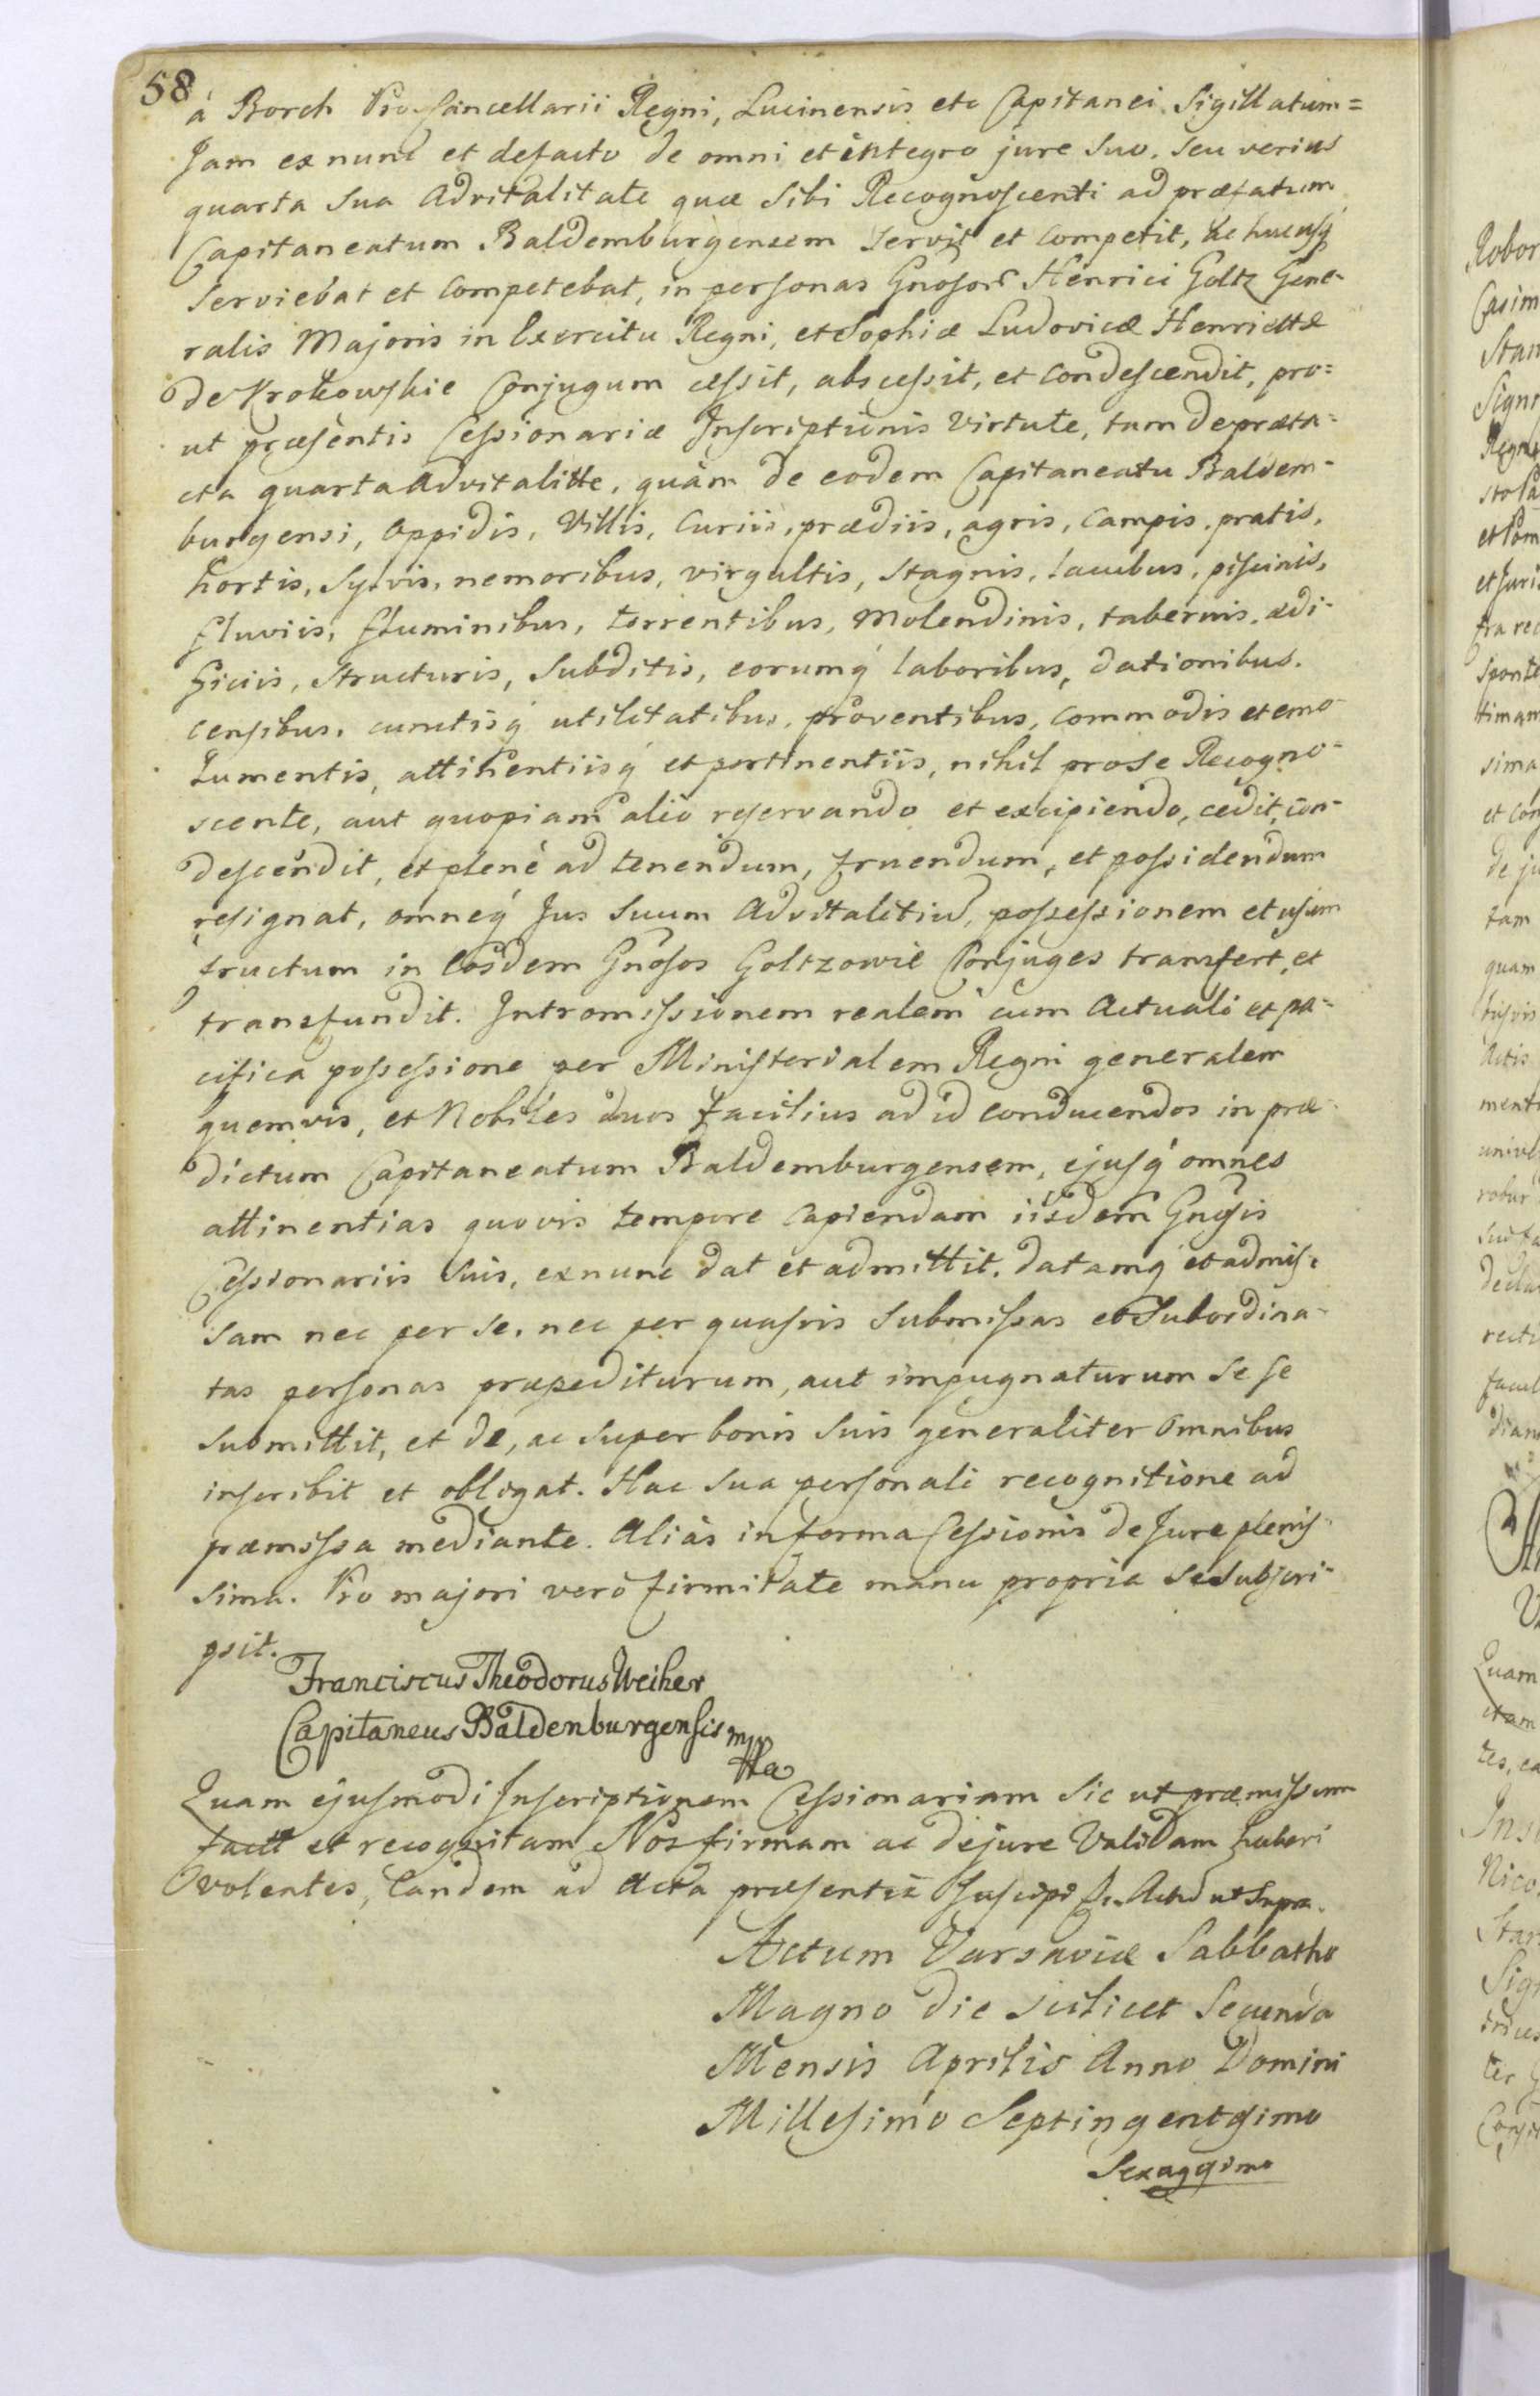 58
á Borch ProCancellarii Regni, Lucinensis etc Capitanei Sigillatum=
Jam ex nunc et defacto de omni et integro jure suo, seu verius
quarta sua Advitalitate quæ sibi Recognoscenti ad præfatum
Capitaneatum Baldemburgensem servit et competit, ac hucusq́
serviebat et competebat, in personas Gnosor Henrici Goltz Gene-
ralis Majoris in Exercitu Regni, et Sophiæ Ludovicæ Henriettæ
de Krokowskie Conjugum cessit, abscessit, et condescendit, pro=
ut præsentis Cessionariæ Inscriptionis virtute, tam de præta=
cta quarta Advitalitte, quàm de eodem Capitaneatu Baldem-
burgensi, Oppidis, Villis, Curiis, prædiis, agris, campis, pratis,
hortis, Sylvis, nemoribus, virgultis, stagnis, lacubus, piscinis,
fluviis, fluminibus, torrentibus, Molendinis, tabernis, ædi-
ficiis, structuris, subditis, eorumq́ laboribus, dationibus,
censibus, cunctisq́ utilitatibus, proventibus, commodis et emo-
lumentis, attinentiisq́ et pertinentiis, nihil pro se Recogno-
scente, aut quopiam alio reservando et excipiendo, cedit, con-
descendit, et plenè ad tenendum, fruendum, et possidendum
resignat, omneq́ Jus suum Advitalitiu, possessionem et usum
fructum in Eosdem Gnosos Goltzowie Conjuges transfert, et
transfundit. Intromissionem realem cum Actuali et pa=
cifica possessione per Ministerialem Regni generalem
quemvis, et Nobiles duos facilius ad id conducendos in præ-
dictum Capitaneatum Baldemburgensem, ejusq́ omnes
attinentias quovis tempore capiendam iisdem Gnosis
Cessionariis suis, ex nunc dat et admittit, datamq́ et admis-
sam nec per se, nec per quasvis submissas et Subordina-
tas personas præpediturum, aut impugnaturum se se
submittit, et de, ac super bonis suis generaliter omnibus
inscribit et obligat. Hac sua personali recognitione ad
præmissa mediante. Aliàs in forma Cessionis de Jure plenis-
sima. Pro majori verò firmitate manu propria se subscri-
psit.
Franciscus Theodorus Weiher
Capitaneus Baldenburgensis mppa
Quam ejusmodi Inscriptionem Cessionariam sic ut præmissum
factt et recognitam Nos firmam ac de jure Validam haberi
volentes, Eandem ad Acta præsentia suscipi fe. Actu ut supra.
Actum Varsaviæ Sabbatho
Magno die scilicet Secunda
Mensis Aprilis Anno Domini
Millesimo Septingentesimo
Sexagesimo
Robor
Casim
Stan
Sign
et Pom
et Juri
fra rec
Sponte
timam
sima
et con
de ju
tam
quam
Actis
ment
robur
decla
recti
facul
diam
Quam
etam
tes, ea
Ins
Nico
Star
Sig
ter